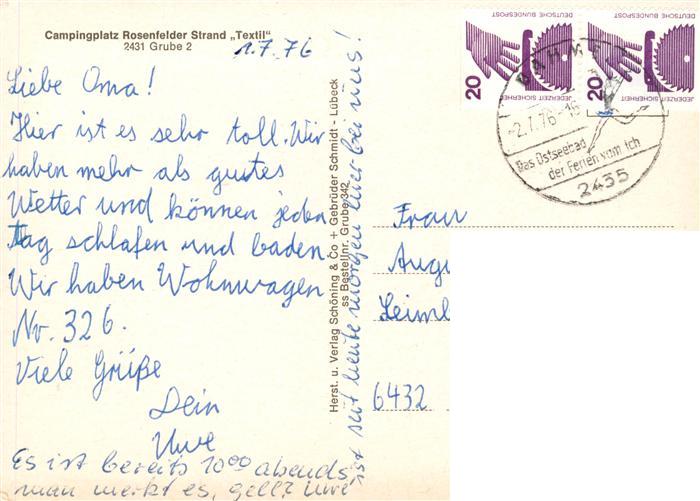 Campingplatz Rosenfelder Strand „Textil“
2431 Grube 2
1.7.76
Liebe Oma!
Hier ist es sehr toll. Wir
haben mehr als gutes
Wetter und können jeden
Tag schlafen und baden.
Wir haben Wohnwagen
Nr. 326.
Viele Grüße
Dein
Uwe
Es ist bereits 10⁰⁰ abends,
man merkt es, gell? Uwe
ist seit heute morgen hier bei uns!
Herst. u. Verlag Schöning & Co + Gebrüder Schmidt - Lübeck
ss Bestellnr. Grube 342
DEUTSCHE BUNDESPOST
JEDERZEIT SICHERHEIT
20
DEUTSCHE BUNDESPOST
JEDERZEIT SICHERHEIT
20
DAHME
-2.7.76-16
Das Ostseebad
der Ferien vom Ich
2435
Frau
Augu
Leiml
6432